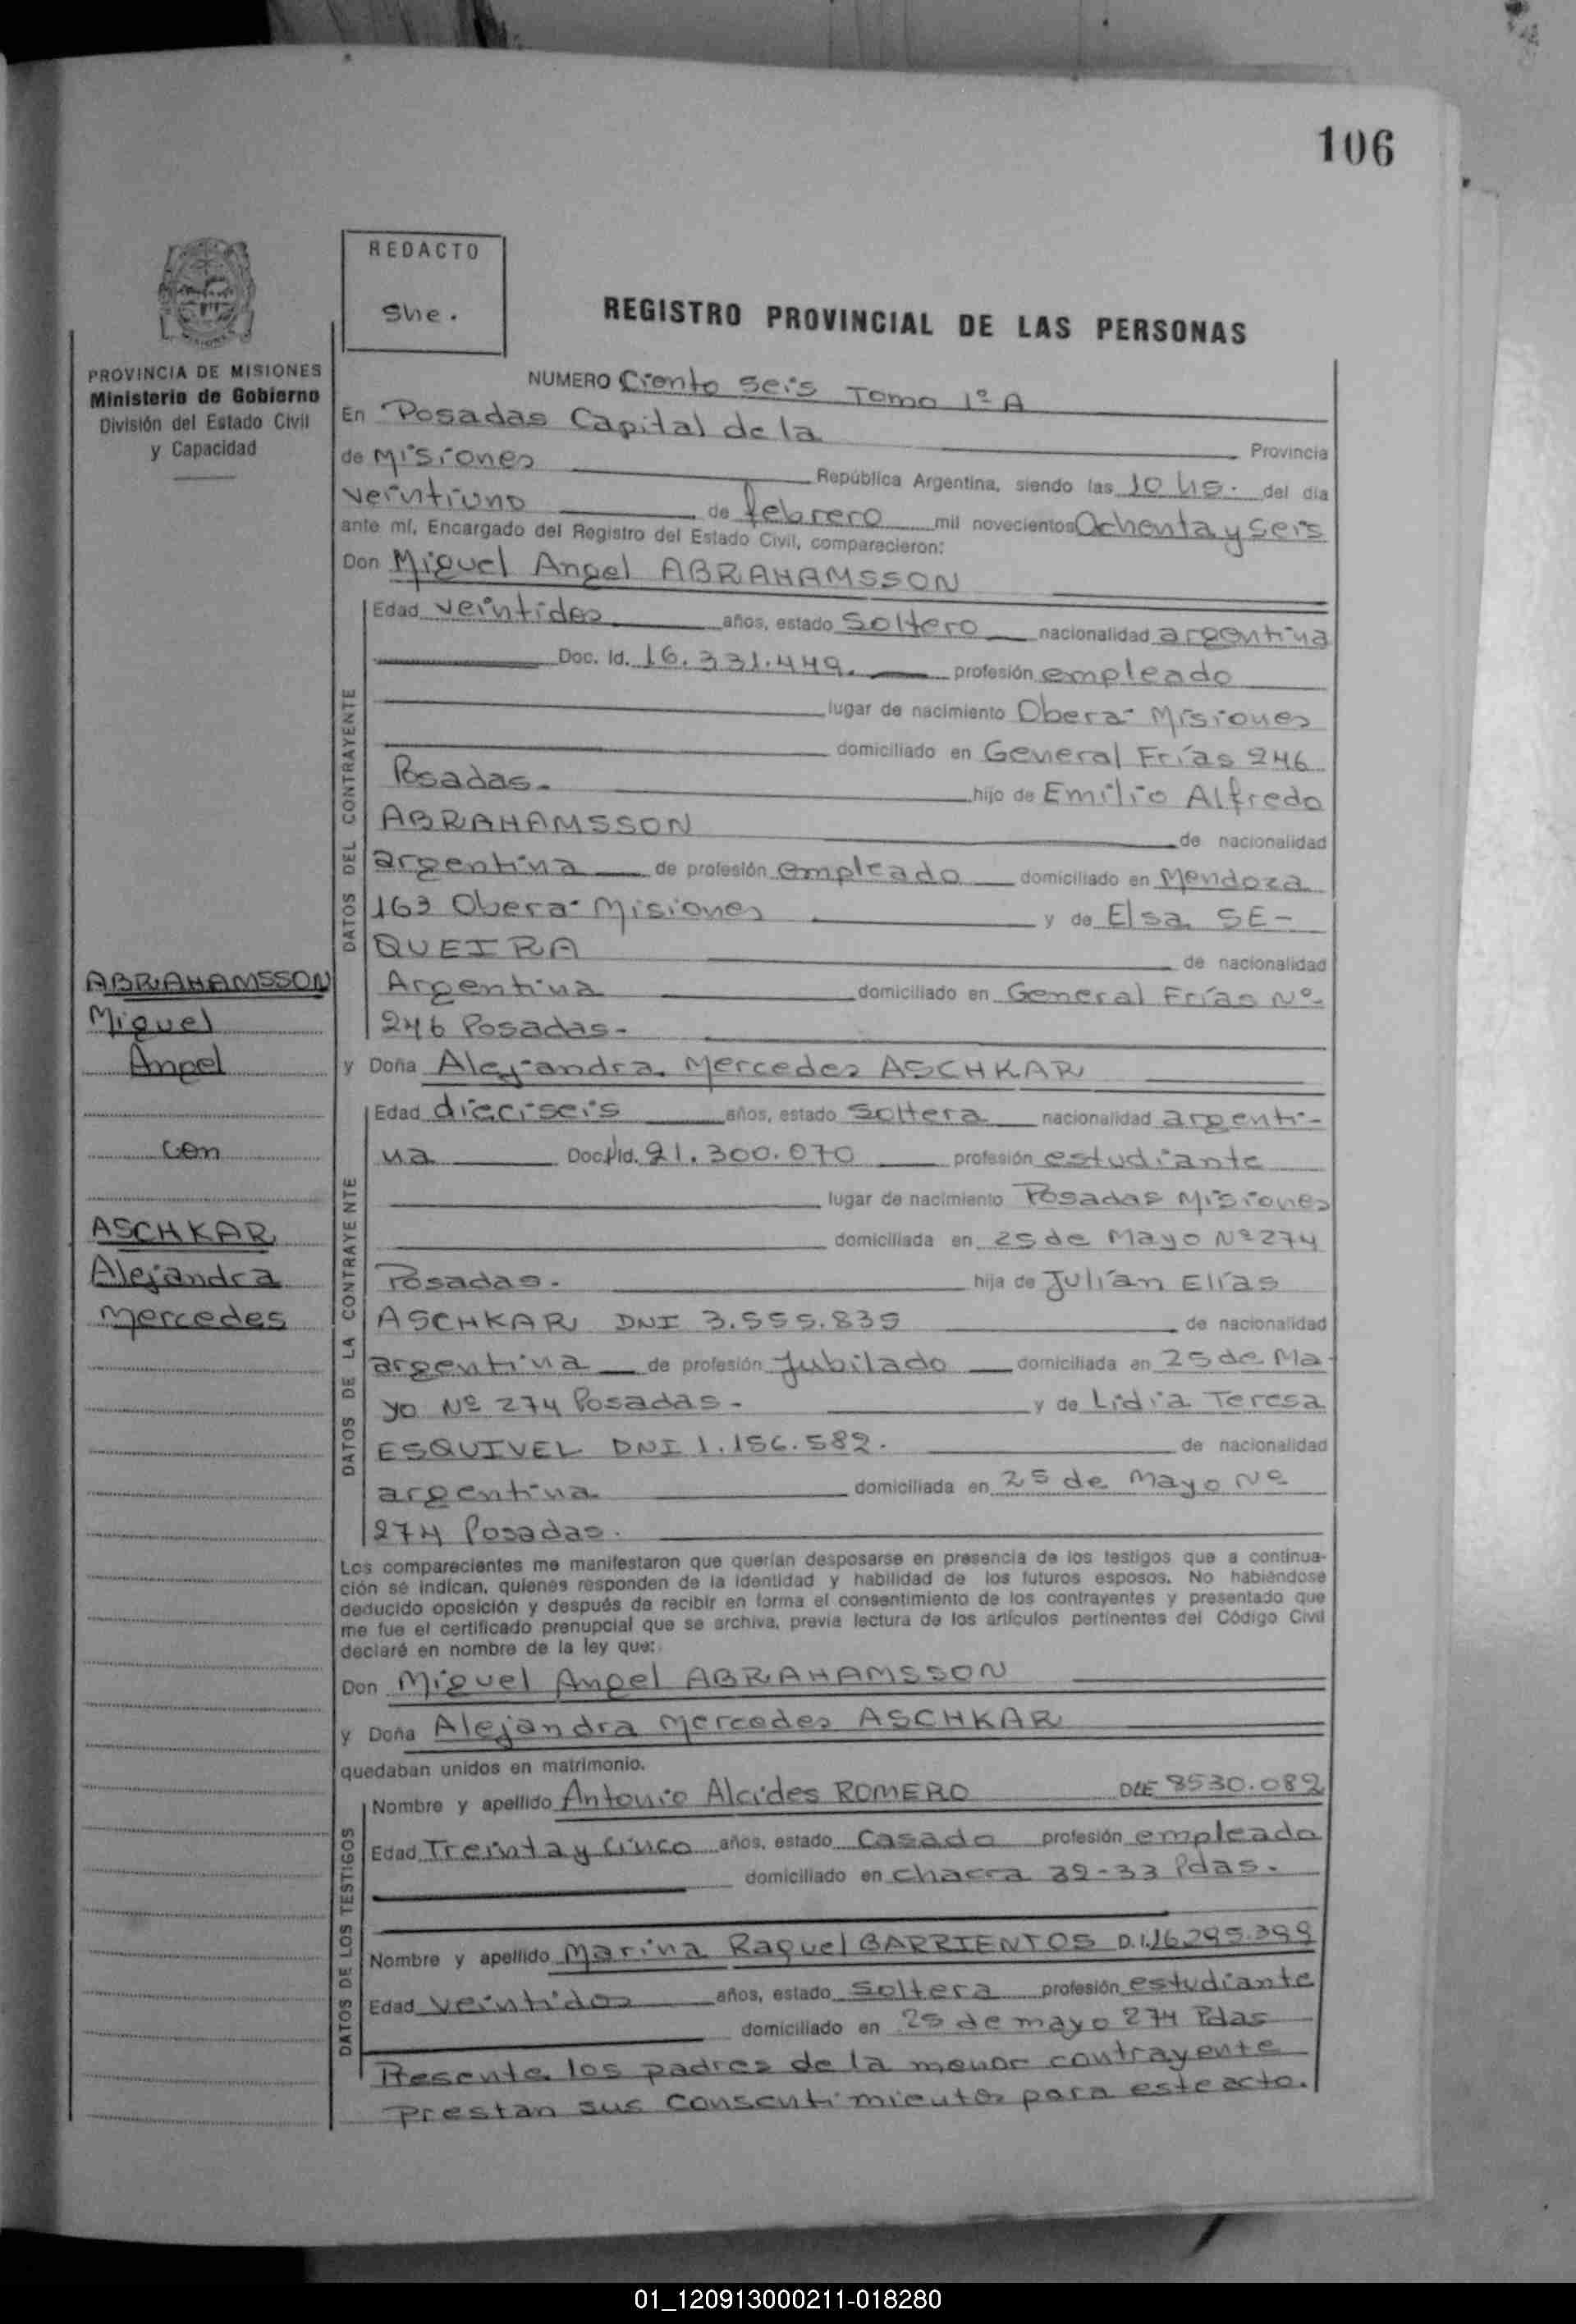 106
REDACTO
She.
PROVINCIA DE MISIONES
Ministerio de Gobierno
División del Estado Civil
y Capacidad
REGISTRO PROVINCIAL DE LAS PERSONAS
NUMERO Ciento seis Tomo 1º A
En Posadas Capital de la Provincia
de Misiones República Argentina, siendo las 10 hs. del día
veintiuno de febrero mil novecientos Ochenta y seis
ante mí, Encargado del Registro del Estado Civil, comparecieron:
Don Miguel Angel ABRAHAMSSON
DATOS DEL CONTRAYENTE
Edad veintidos años, estado Soltero nacionalidad argentina
Doc. Id. 16.331.449. profesión empleado
lugar de nacimiento Obera- Misiones
domiciliado en General Frías 246
Posadas.- hijo de Emilio Alfredo
ABRAHAMSSON de nacionalidad
argentina de profesión empleado domiciliado en Mendoza
163 Obera- Misiones y de Elsa SE-
QUEIRA de nacionalidad
Argentina domiciliado en General Frías Nº
246 Posadas-
y Doña Alejandra Mercedes ASCHKAR
DATOS DE LA CONTRAYENTE
Edad dieciseis años, estado soltera nacionalidad argenti-
na Doc. Id. 21.300.070 profesión estudiante
lugar de nacimiento Posadas Misiones
domiciliada en 25 de Mayo Nº 274
Posadas.- hija de Julián Elías
ASCHKAR DNI 3.555.835 de nacionalidad
argentina de profesión Jubilado domiciliada en 25 de Ma-
yo Nº 274 Posadas.- y de Lidia Teresa
ESQUIVEL DNI 1.156.582. de nacionalidad
argentina domiciliada en 25 de Mayo Nº
274 Posadas.
ABRAHAMSSON
Miguel
Angel
con
ASCHKAR
Alejandra
Mercedes
Los comparecientes me manifestaron que querían desposarse en presencia de los testigos que a continua-
ción se indican, quienes responden de la identidad y habilidad de los futuros esposos. No habiéndose
deducido oposición y después de recibir en forma el consentimiento de los contrayentes y presentado que
me fue el certificado prenupcial que se archiva, previa lectura de los artículos pertinentes del Código Civil
declaré en nombre de la ley que:
Don Miguel Angel ABRAHAMSSON
y Doña Alejandra Mercedes ASCHKAR
quedaban unidos en matrimonio.
DATOS DE LOS TESTIGOS
Nombre y apellido Antonio Alcides ROMERO 8530.082
Edad Treinta y Cinco años, estado Casado profesión empleado
domiciliado en chacra 32-33 Pdas.
Nombre y apellido Marina Raquel BARRIENTOS D.I. 16.295.399
Edad veintidos años, estado Soltera profesión estudiante
domiciliado en 25 de mayo 274 Pdas
Presente los padres de la menor contrayente
prestan sus consentimientos para este acto.
01_120913000211-018280